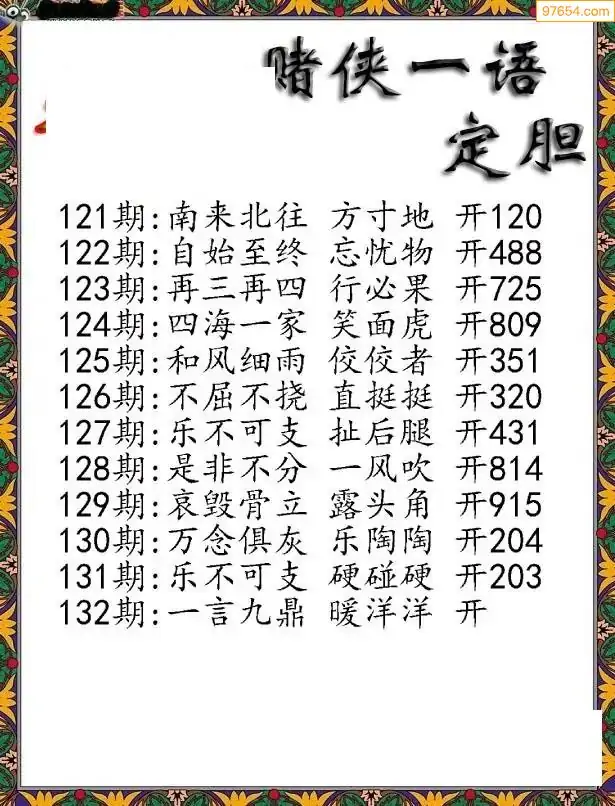 97654.com
赌侠一语
定胆
121期:南来北往 方寸地 开120
122期:自始至终 忘忧物 开488
123期:再三再四 行必果 开725
124期:四海一家 笑面虎 开809
125期:和风细雨 佼佼者 开351
126期:不屈不挠 直挺挺 开320
127期:乐不可支 扯后腿 开431
128期:是非不分 一风吹 开814
129期:哀毁骨立 露头角 开915
130期:万念俱灰 乐陶陶 开204
131期:乐不可支 硬碰硬 开203
132期:一言九鼎 暖洋洋 开